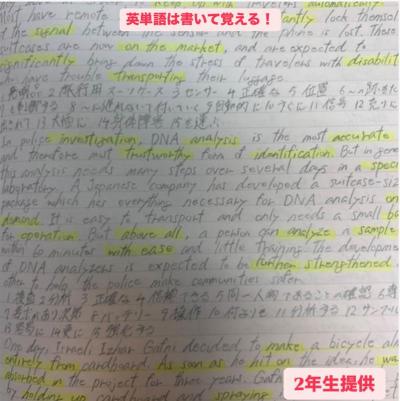 英単語は書いて覚える!
most have remote
automatically
lock themsel
the signal between the sensor and the phone is lost. These
suitcases are now on the market, and are expected to
significantly bring down the stress of travelers with disabilit
have trouble transporting their luggage.
2 旅行用スーツケース 3 センサー 4 正確な 5 位置
9 自動的に 10 11 信号 12
13 大幅に 14 身体障害
In police investigation, DNA analysis is the most accurate
and therefore most trustworthy form of identification. But in gene
this analysis needs many steps over several days in a speci
laboratory. A Japanese company has developed a suitcase-siz
package which has everything necessary for DNA analysis on
demand. It is easy to transport and only needs a small ba
for operation. But above all, a person can analyze a sample
within 60 minutes with ease and little training. The developme
of DNA analyzers is expected to be further strengthened
other to help the police make communities safer.
1 捜査 2 分析 3 正確な 4 信頼できる 5 同一人物であることの確認 6
8 バッテリー 9 操作 10 何よりも 11 分析する 12 サンプル
13 容易に 14 更に 15 強化する
One day, Israeli Izhar Gafni decided to make a bicycle al
entirely from cardboard. As soon as he hit on the idea, he wa
absorbed in the project for three years. Gafn
by holding up cardboard and spraying
2年生提供